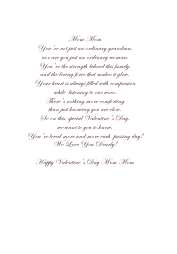 Mom Mom
You're not just an ordinary grandma,
nor are you just an ordinary woman.
You're the strength behind this family,
and the loving force that makes it glow.
Your heart is always filled with compassion
while listening to our woes.
There's nothing more comforting
than just knowing you are close.
So on this special Valentine's Day,
we want you to know,
You're loved more and more each passing day!
We Love You Dearly!
Happy Valentine's Day Mom Mom